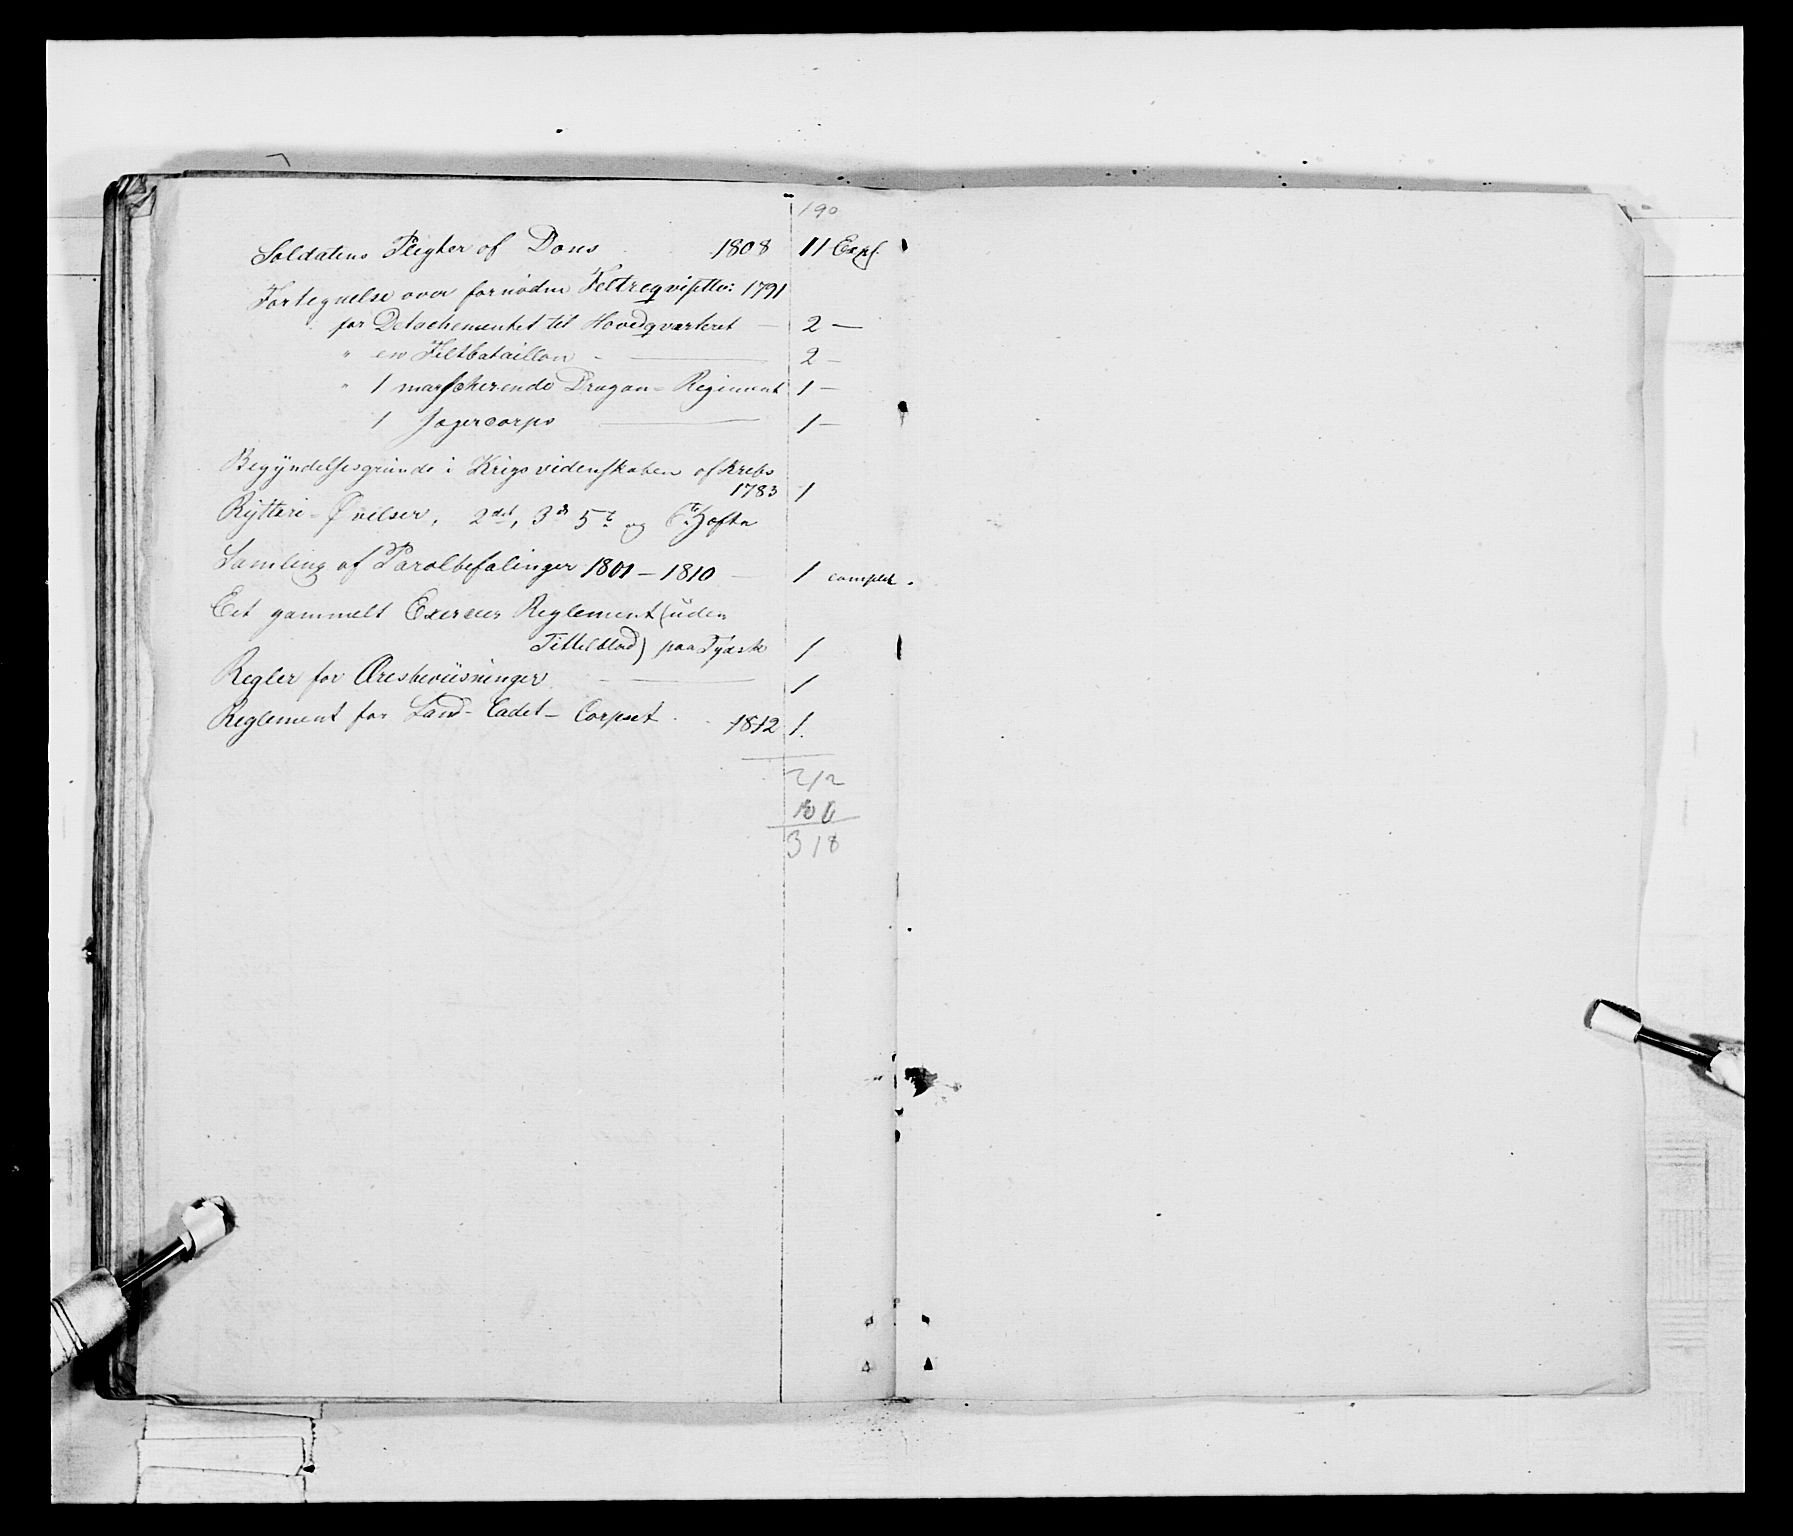 190
Soldatens Pligter af Dons 1808 11 Expl.
Fortegnelse over fornødne Feltreqvisitter: 1791
for Detachementet til Hovedqvarteret — 2 —
" en Feltbataillon — 2 —
" 1 marscherende Dragon-Regiment 1 —
1 Jagercorps — 1 —
Begyndelsesgrunde i Krigsvidenskaben af Krebs
1783 1
Rytteri-Øvelser, 2det, 3die 5te og 6te Hefte
Samling af Parolbefalinger 1801 — 1810 — 1 complet.
Eet gammelt Exerceer Reglement (uden
Tittelblad) paa Tydsk 1
Regler for Æresbeviisninger — 1
Reglement for Land-Cadet-Corpset 1812 1.
212
318